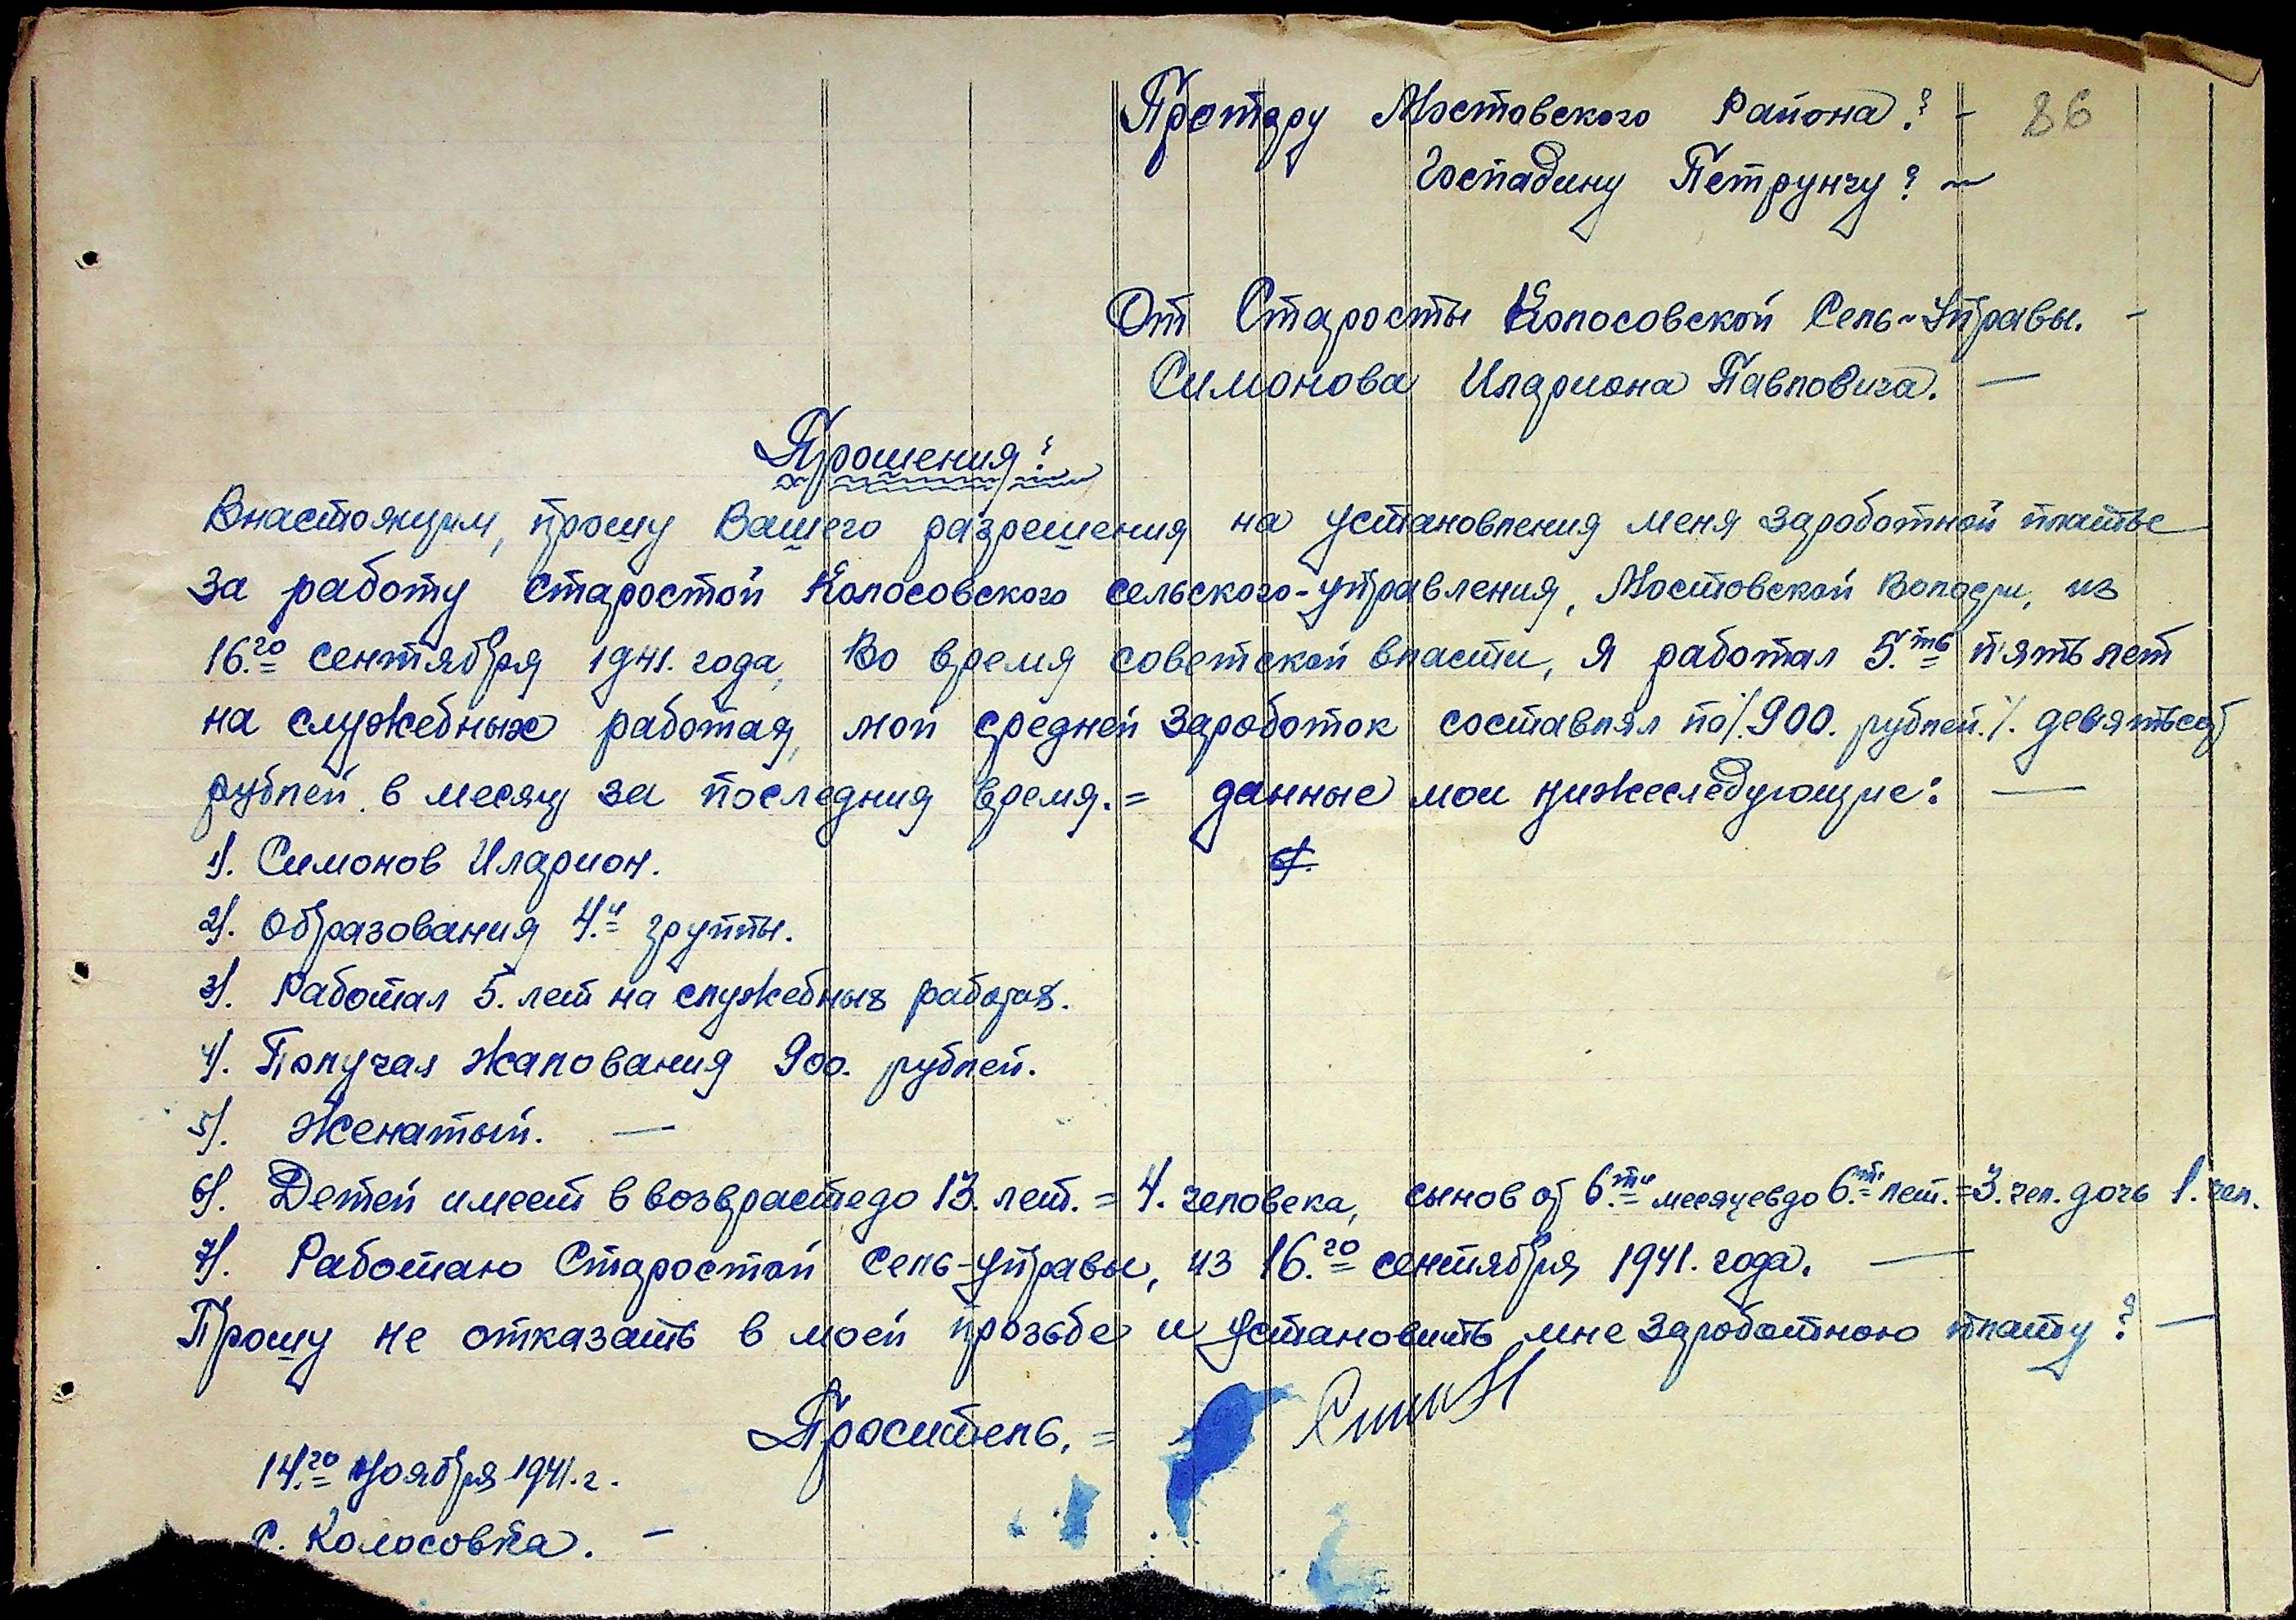 Претору Мостовского Района? - 86
Госпадину Петрунчу? ~
От Старосты Колосовской Сель-Управы. -
Симонова Илариона Павловича. —
Прошения?
Внастоящим, прошу Вашего разрешения на установления меня зароботной платы
за работу старостой Колосовского сельского-управления, Мостовской Волости, из
16.го сентября 1941. года, Во время советской власти, я работал 5.ть пять лет
на служебных работах, мой средней зароботок составлял по ⁒ 900. рублей. ⁒ девятьсот
рублей. в месяц за последния время. = данные мои нижеследующие: —
1). Симонов Иларион. 6).
2). Образования 4.и группы.
3). Работал 5. лет на служебных работах.
4). Получал жалования 900. рублей.
5). Женатый. —
6). Детей имеет в возврастедо 13. лет. = 4. человека, сынов от 6.ти месяцевдо 6.ти лет. = 3. чел. дочь 1. чел.
7). Работаю Старостой сель-управы, из 16.го сентября 1941. года. —
Прошу не отказать в моей прозьбе и установить мне зароботною плату? —
Проситель. =
14.го ноября 1941. г.
С. Колосовка. -